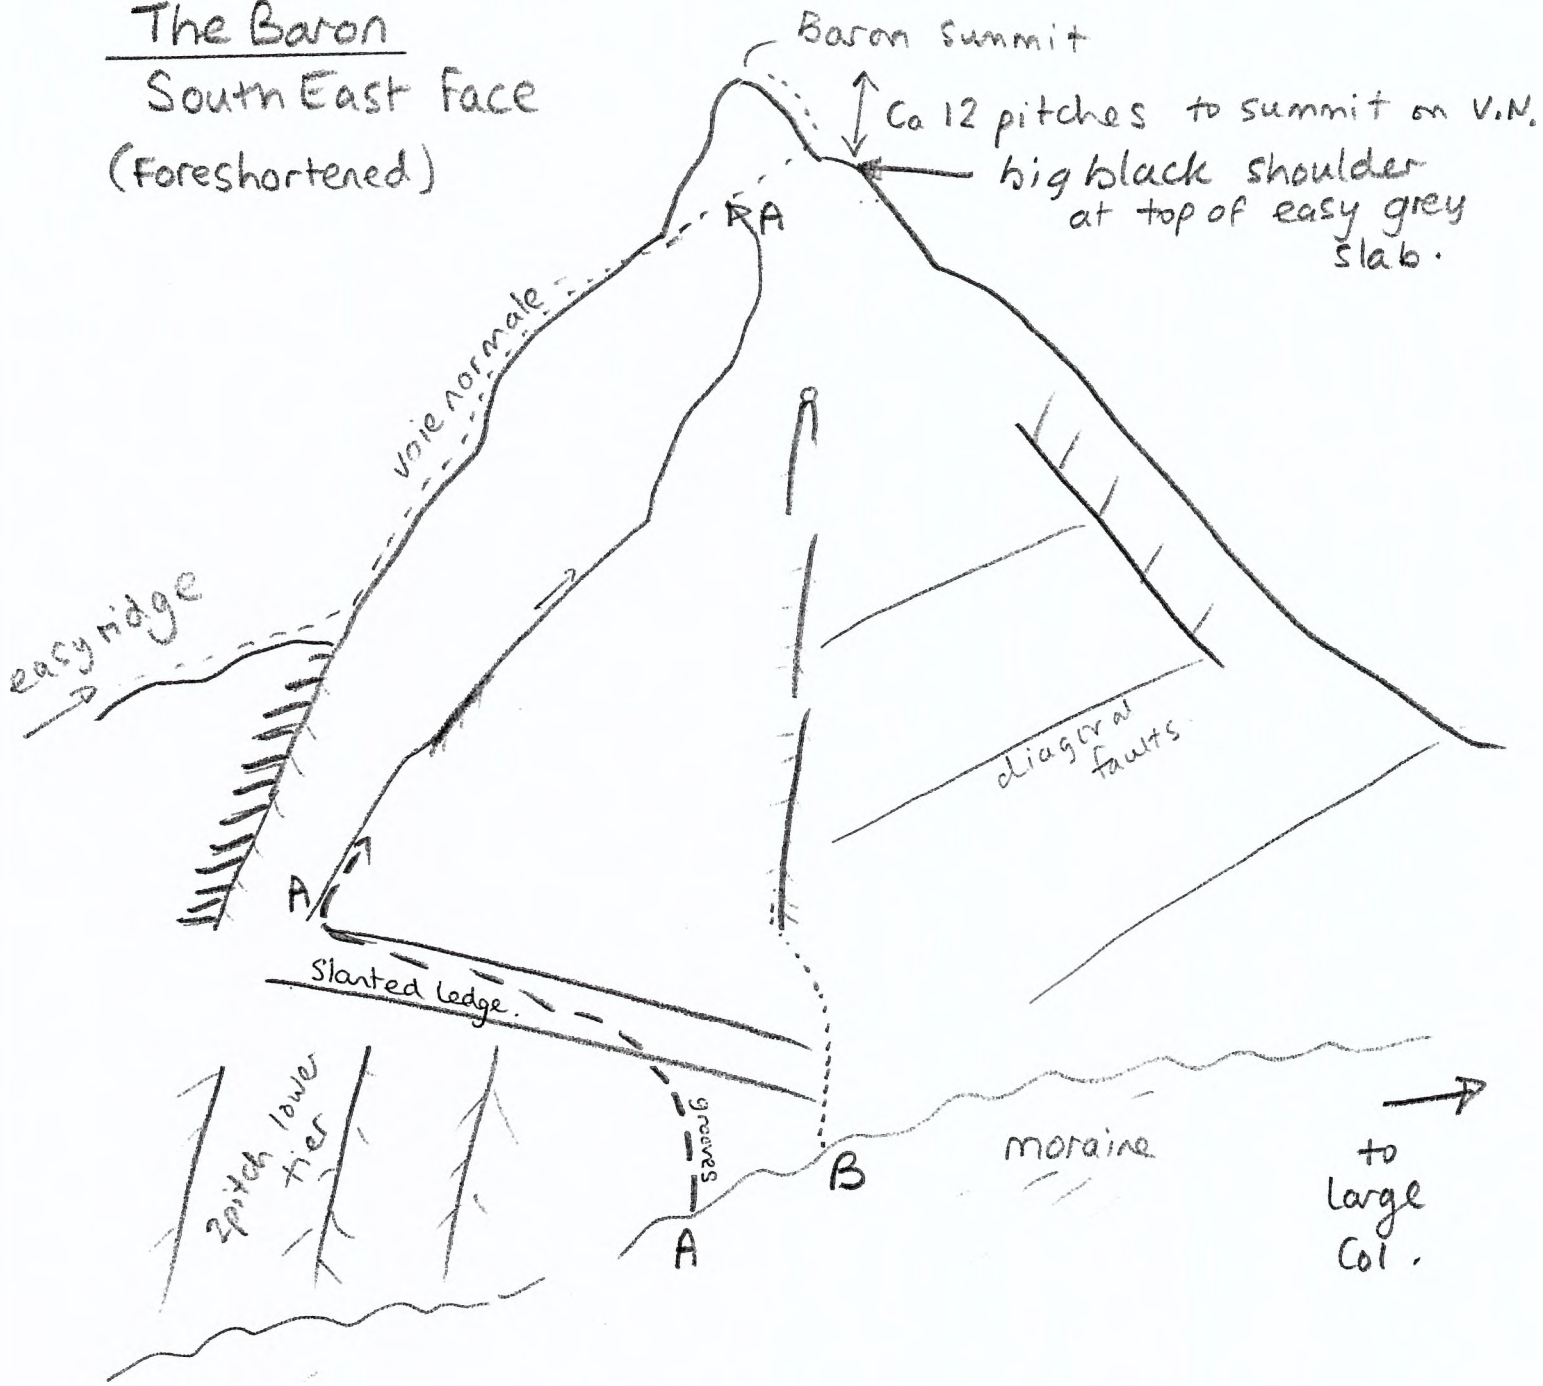 The Baron
South East Face
(Foreshortened)
Baron summit
Ca 12 pitches to summit on V.N.
big black shoulder
at top of easy grey
slab.
A
voie normale
easy ridge
diagonal
faults
A
Slanted ledge.
2pitch lower
tier
grooves
A
B
moraine
to
large
Col.